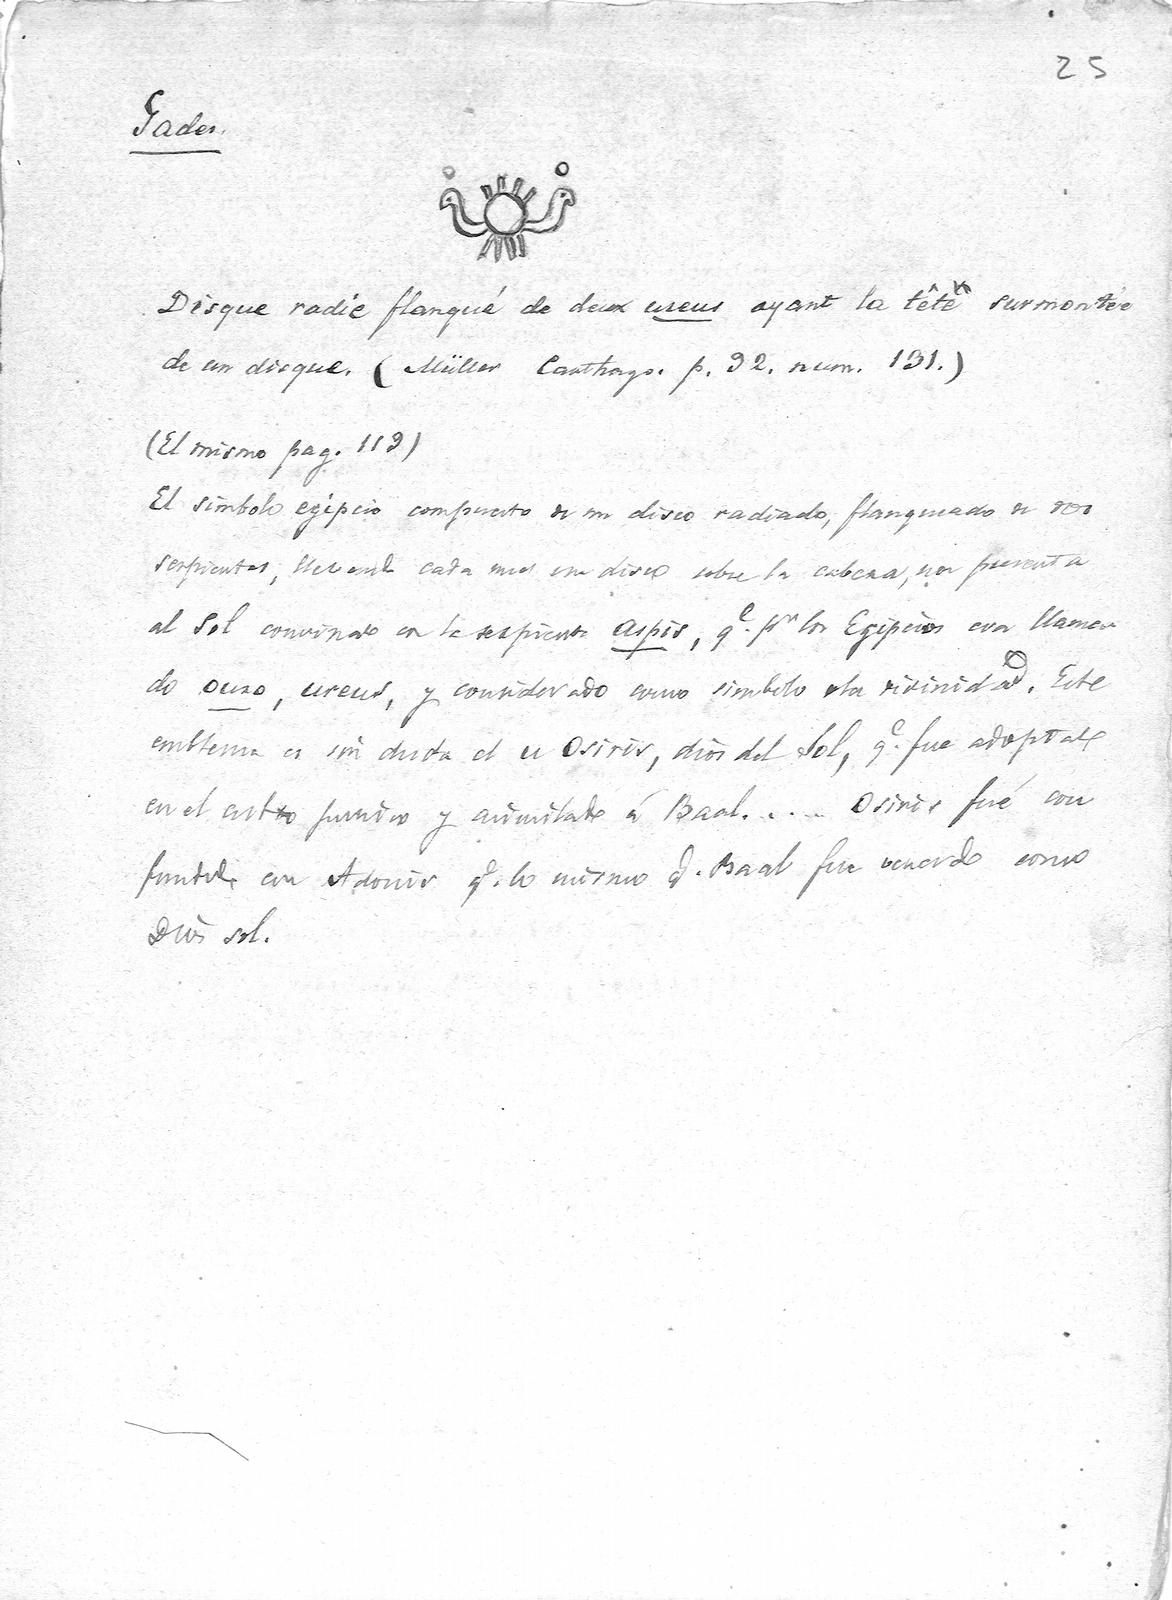 25
Gades.
Disque radié flanqué de deux ureus ayant la tête surmontée
de un disque. (Müller Carthago. p. 92. num. 131.)
(El mismo pag. 119)
El simbolo egipcio compuesto de un disco radiado, flanqueado de dos
serpientes, llevando cada una un disco sobre la cabeza, nos presenta
al Sol convinado con la serpiente Aspis, qe. pr. los Egipcios era llama
do ouro, ureus, y considerado como simbolo de la divinidad. Este
emblema es sin duda el de Osiris, dios del Sol, qe. fue adoptado
en el culto punico y asimilado á Baal..... Osiris fué con
fundido con Adonis q. lo mismo q. Baal fue venerado como
Dios sol.